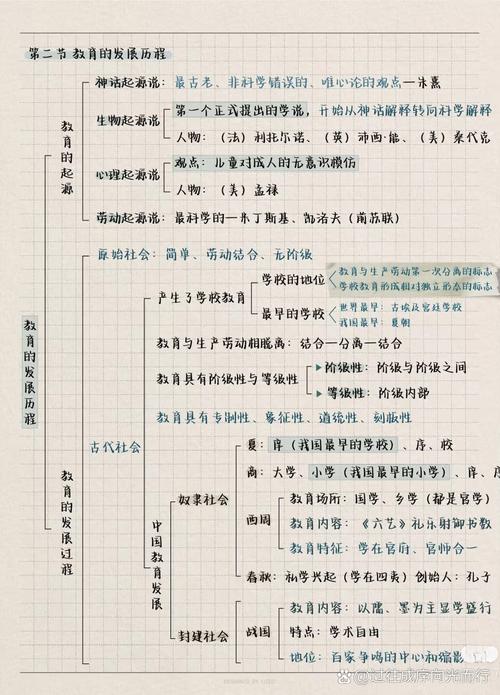 第二节 教育的发展历程
教育的发展历程
教育的起源
神话起源说：最古老、非科学错误的、唯心论的观点—朱熹
生物起源说
第一个正式提出的学说，开始从神话解释转向科学解释
人物：（法）利托尔诺、（英）沛西·能、（美）桑代克
心理起源说
观点：儿童对成人的无意识模仿
人物：（美）孟禄
劳动起源说：最科学的—米丁斯基、凯洛夫（前苏联）
教育的发展过程
原始社会：简单、劳动结合、无阶级
古代社会
产生了学校教育
学校的地位
教育与生产劳动第一次分离的标志
学校教育形成相对独立形态的标志
最早的学校
世界最早：古埃及宫廷学校
我国最早：夏朝
教育与生产劳动相脱离：结合—分离—结合
教育具有阶级性与等级性
阶级性：阶级与阶级之间
等级性：阶级内部
教育具有专制性、象征性、道统性、刻板性
中国教育发展
奴隶社会
夏：庠（我国最早的学校）、序、校
商：大学、小学（我国最早的小学）、庠、序
西周
教育场所：国学、乡学（都是官学）
教育内容：《六艺》礼乐射御书数
教育特征：学在官府、官师合一
春秋：私学兴起（学在四夷）创始人：孔子
封建社会
战国
教育内容：以儒、墨为主显学盛行
特点：学术自由
地位：百家争鸣的中心和缩影
@过往成序向光而行